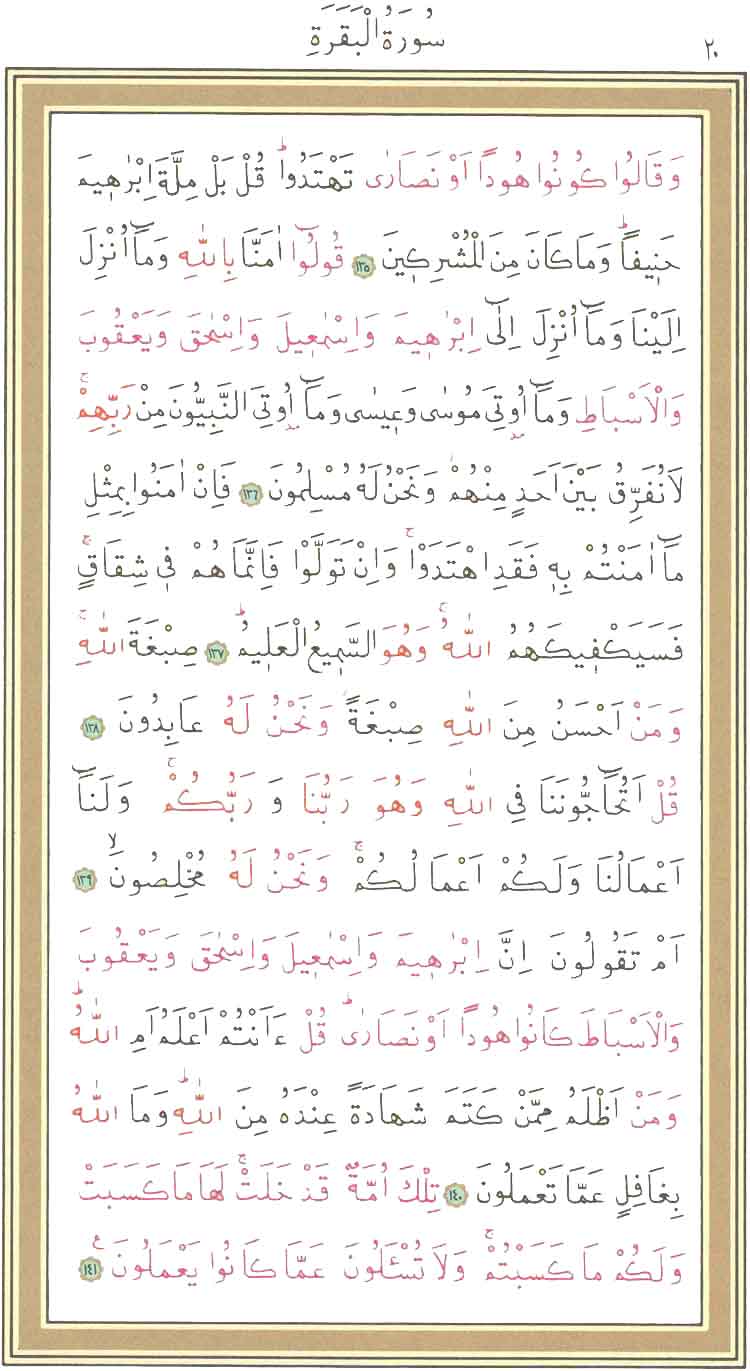 ٢٠
سُورَةُ الْبَقَرَةِ
وَقَالُوا كُونُوا هُودًا اَوْ نَصَارٰى تَهْتَدُواۜ قُلْ بَلْ مِلَّةَ اِبْرٰهٖيمَ
حَنٖيفًاۜ وَمَا كَانَ مِنَ الْمُشْرِكٖينَ ﴿١٣٥﴾ قُولُٓوا اٰمَنَّا بِاللّٰهِ وَمَٓا اُنْزِلَ
اِلَيْنَا وَمَٓا اُنْزِلَ اِلٰٓى اِبْرٰهٖيمَ وَاِسْمٰعٖيلَ وَاِسْحٰقَ وَيَعْقُوبَ
وَالْاَسْبَاطِ وَمَٓا اُو۫تِيَ مُوسٰى وَعٖيسٰى وَمَٓا اُو۫تِيَ النَّبِيُّونَ مِنْ رَبِّهِمْۚ
لَا نُفَرِّقُ بَيْنَ اَحَدٍ مِنْهُمْۘ وَنَحْنُ لَهُ مُسْلِمُونَ ﴿١٣٦﴾ فَاِنْ اٰمَنُوا بِمِثْلِ
مَٓا اٰمَنْتُمْ بِهٖ فَقَدِ اهْتَدَوْاۚ وَاِنْ تَوَلَّوْا فَاِنَّمَا هُمْ فٖي شِقَاقٍۚ
فَسَيَكْفٖيكَهُمُ اللّٰهُۚ وَهُوَ السَّمٖيعُ الْعَلٖيمُۜ ﴿١٣٧﴾ صِبْغَةَ اللّٰهِۚ
وَمَنْ اَحْسَنُ مِنَ اللّٰهِ صِبْغَةًۘ وَنَحْنُ لَهُ عَابِدُونَ ﴿١٣٨﴾
قُلْ اَتُحَٓاجُّونَنَا فِي اللّٰهِ وَهُوَ رَبُّنَا وَرَبُّكُمْۚ وَلَنَٓا
اَعْمَالُنَا وَلَكُمْ اَعْمَالُكُمْۚ وَنَحْنُ لَهُ مُخْلِصُونَۙ ﴿١٣٩﴾
اَمْ تَقُولُونَ اِنَّ اِبْرٰهٖيمَ وَاِسْمٰعٖيلَ وَاِسْحٰقَ وَيَعْقُوبَ
وَالْاَسْبَاطَ كَانُوا هُودًا اَوْ نَصَارٰىۜ قُلْ ءَاَنْتُمْ اَعْلَمُ اَمِ اللّٰهُۜ
وَمَنْ اَظْلَمُ مِمَّنْ كَتَمَ شَهَادَةً عِنْدَهُ مِنَ اللّٰهِۜ وَمَا اللّٰهُ
بِغَافِلٍ عَمَّا تَعْمَلُونَ ﴿١٤٠﴾ تِلْكَ اُمَّةٌ قَدْ خَلَتْۚ لَهَا مَا كَسَبَتْ
وَلَكُمْ مَا كَسَبْتُمْۚ وَلَا تُسْـَٔلُونَ عَمَّا كَانُوا يَعْمَلُونَ ع ﴿١٤١﴾